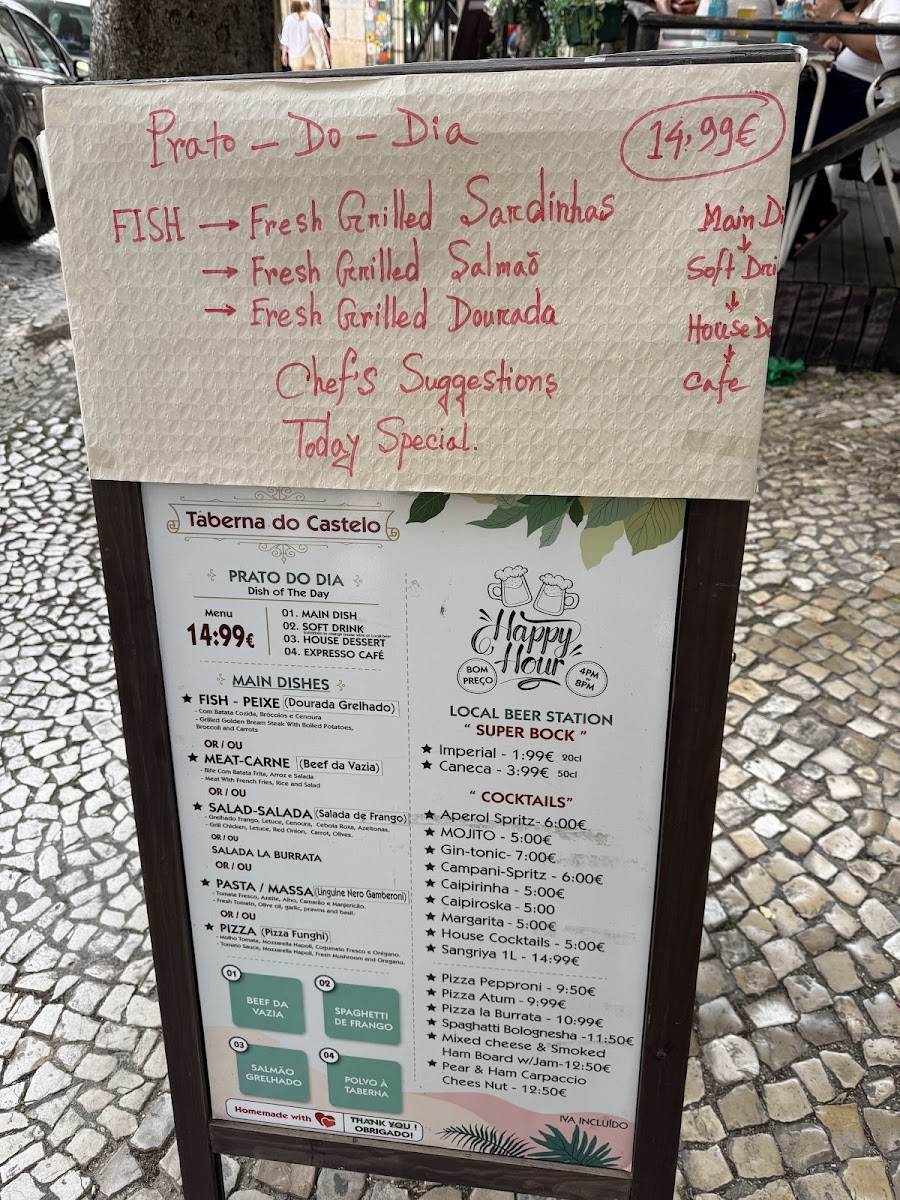 Prato - Do - Dia
14.99€
FISH → Fresh Grilled Sardinhas
→ Fresh Grilled Salmaõ
→ Fresh Grilled Dourada
Chef's Suggestions
Today Special.
Main Di
↓
Soft Dri
↓
House De
↓
Cafe
Taberna do Castelo
PRATO DO DIA
Dish of The Day
Menu
14:99€
01. MAIN DISH
02. SOFT DRINK
03. HOUSE DESSERT
04. EXPRESSO CAFÉ
MAIN DISHES
★ FISH - PEIXE (Dourada Grelhado)
- Com Batata Cozida, Brócolos e Cenoura
- Grilled Golden Bream Steak With Boiled Potatoes,
Broccoli and Carrots
OR / OU
★ MEAT-CARNE (Beef da Vazia)
- Bife Com Batata Frita, Arroz e Salada
- Meat With French Fries, Rice and Salad
OR / OU
★ SALAD-SALADA (Salada de Frango)
- Grelhado Frango, Letuce, Cenoura, Cebola Roxa, Azeitonas.
- Grill Chicken, Letuce, Red Onion, Carrot, Olives.
OR / OU
SALADA LA BURRATA
OR / OU
★ PASTA / MASSA (Linguine Nero Gamberoni)
- Tomate Fresco, Azeite, Alho, Camarão e Manjericão.
- Fresh Tomato, Olive oil, garlic, prawns and basil.
OR / OU
★ PIZZA (Pizza Funghi)
- Molho Tomate, Mozzarella Napoli, Cogumelo Fresco e Orégano.
- Tomato Sauce, Mozzarella Napoli, Fresh Mushroom and Oregano.
01
BEEF DA
VAZIA
02
SPAGHETTI
DE FRANGO
03
SALMÃO
GRELHADO
04
POLVO À
TABERNA
Homemade with
THANK YOU !
OBRIGADO!
Happy
Hour
BOM
PREÇO
4PM
8PM
LOCAL BEER STATION
" SUPER BOCK "
★ Imperial - 1:99€ 20cl
★ Caneca - 3:99€ 50cl
" COCKTAILS"
★ Aperol Spritz- 6:00€
★ MOJITO - 5:00€
★ Gin-tonic- 7:00€
★ Campani-Spritz - 6:00€
★ Caipirinha - 5:00€
★ Caipiroska - 5:00
★ Margarita - 5:00€
★ House Cocktails - 5:00€
★ Sangriya 1L - 14:99€
★ Pizza Pepproni - 9:50€
★ Pizza Atum - 9:99€
★ Pizza la Burrata - 10:99€
★ Spaghatti Bolognesha -11:50€
★ Mixed cheese & Smoked
Ham Board w/Jam-12:50€
★ Pear & Ham Carpaccio
Chees Nut - 12:50€
IVA INCLUÍDO